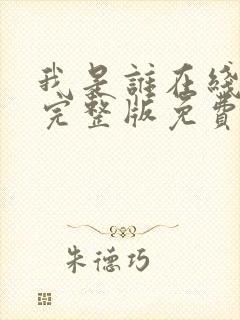 我是誰在綫
完整版免費
朱德巧